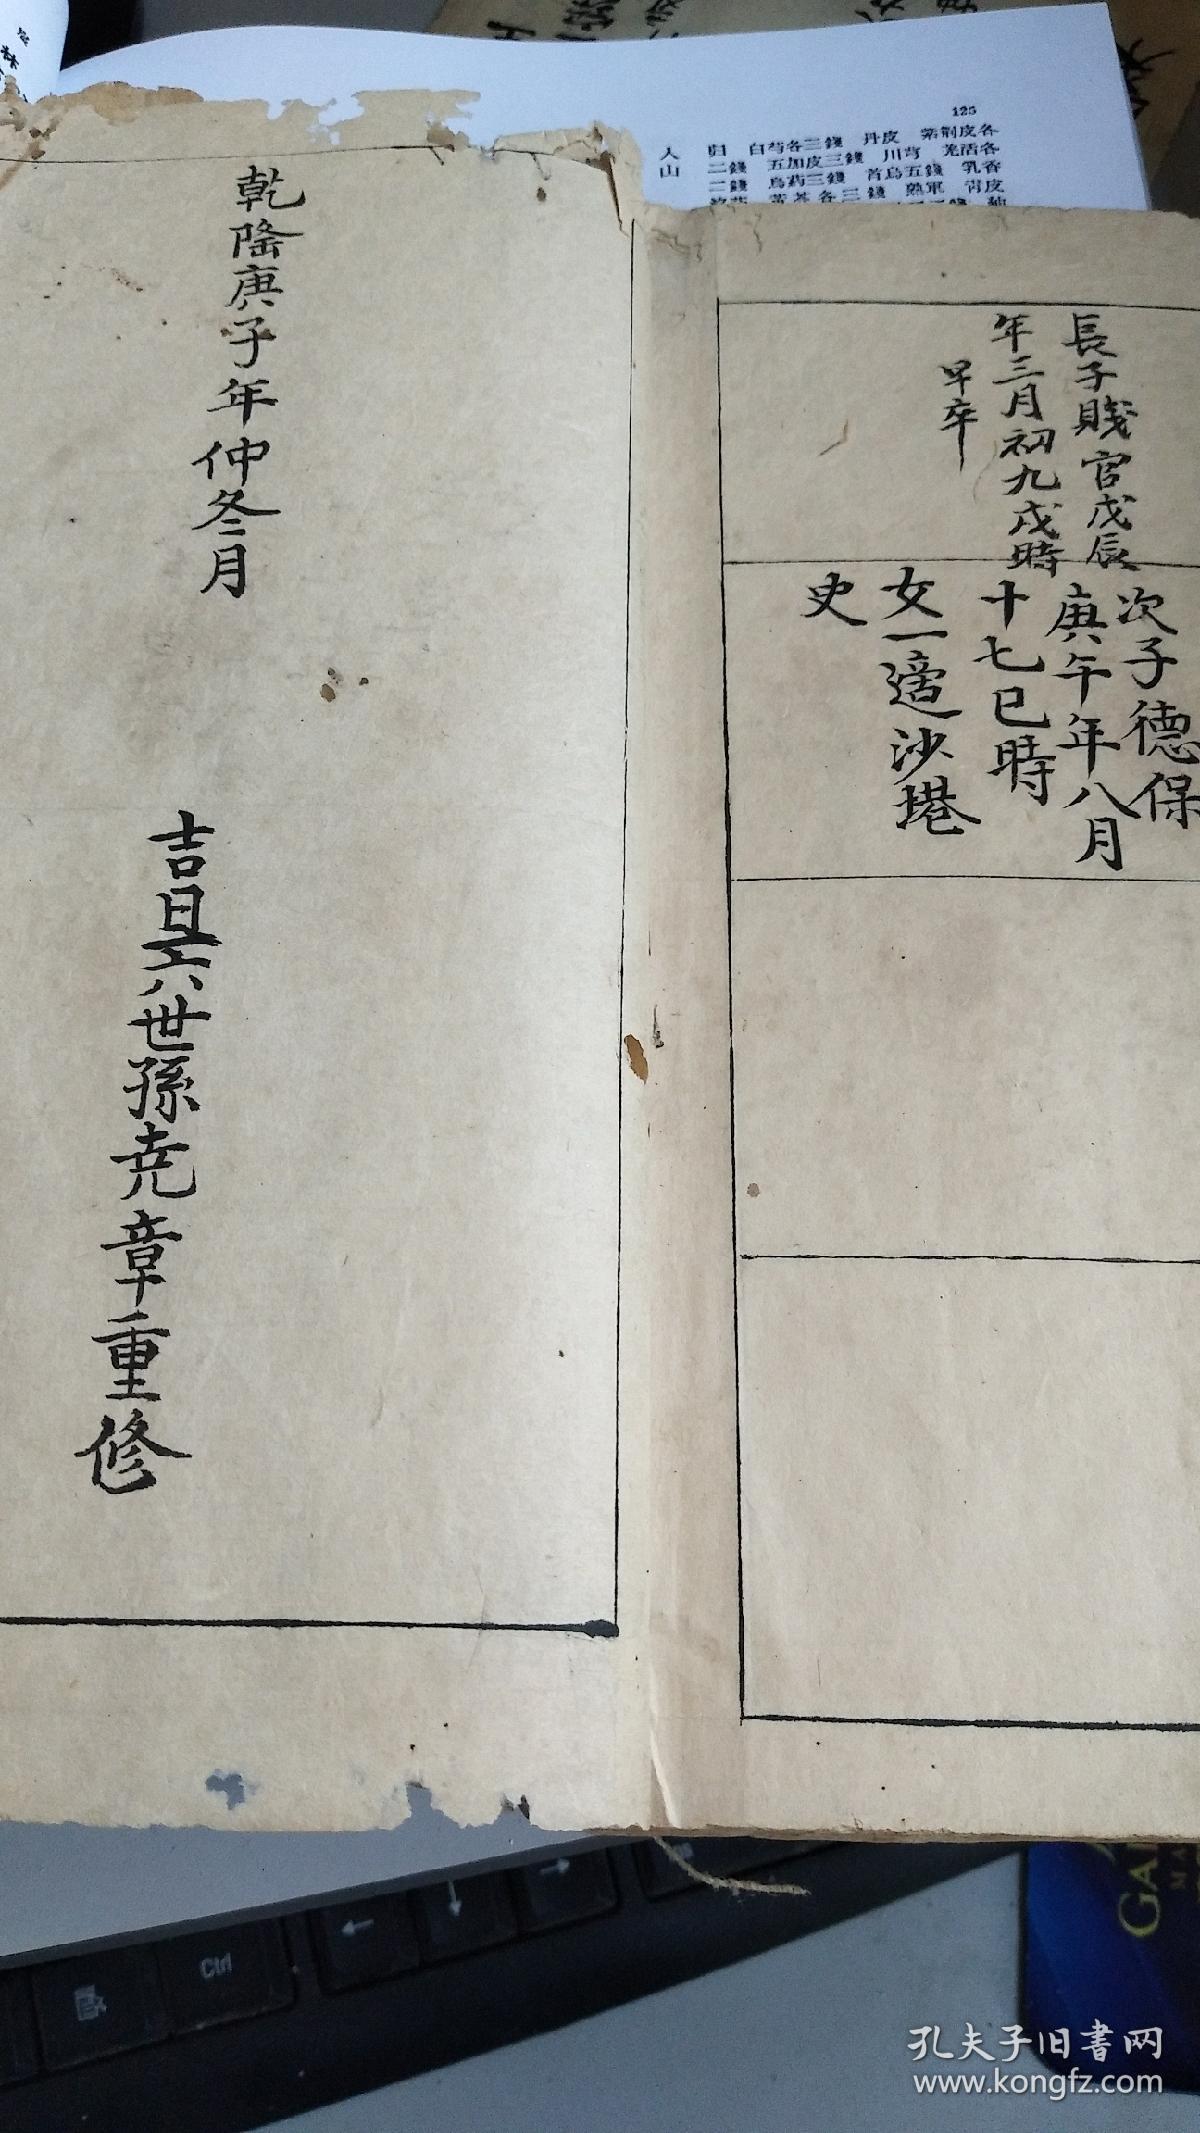 125
人 归 白芍各三錢 丹皮 紫荆皮各
山 二錢 五加皮三錢 川芎 羌活各
二錢 烏药三錢 首烏五錢 乳香
長子賤官戊辰
年三月初九戌時
早卒
次子德保
庚午年八月
十七巳時
女一適沙塂
史
乾隆庚子年仲冬月
吉旦六世孫尭章重修
Ctrl
GAL
MA
孔夫子旧書网
www.kongfz.com